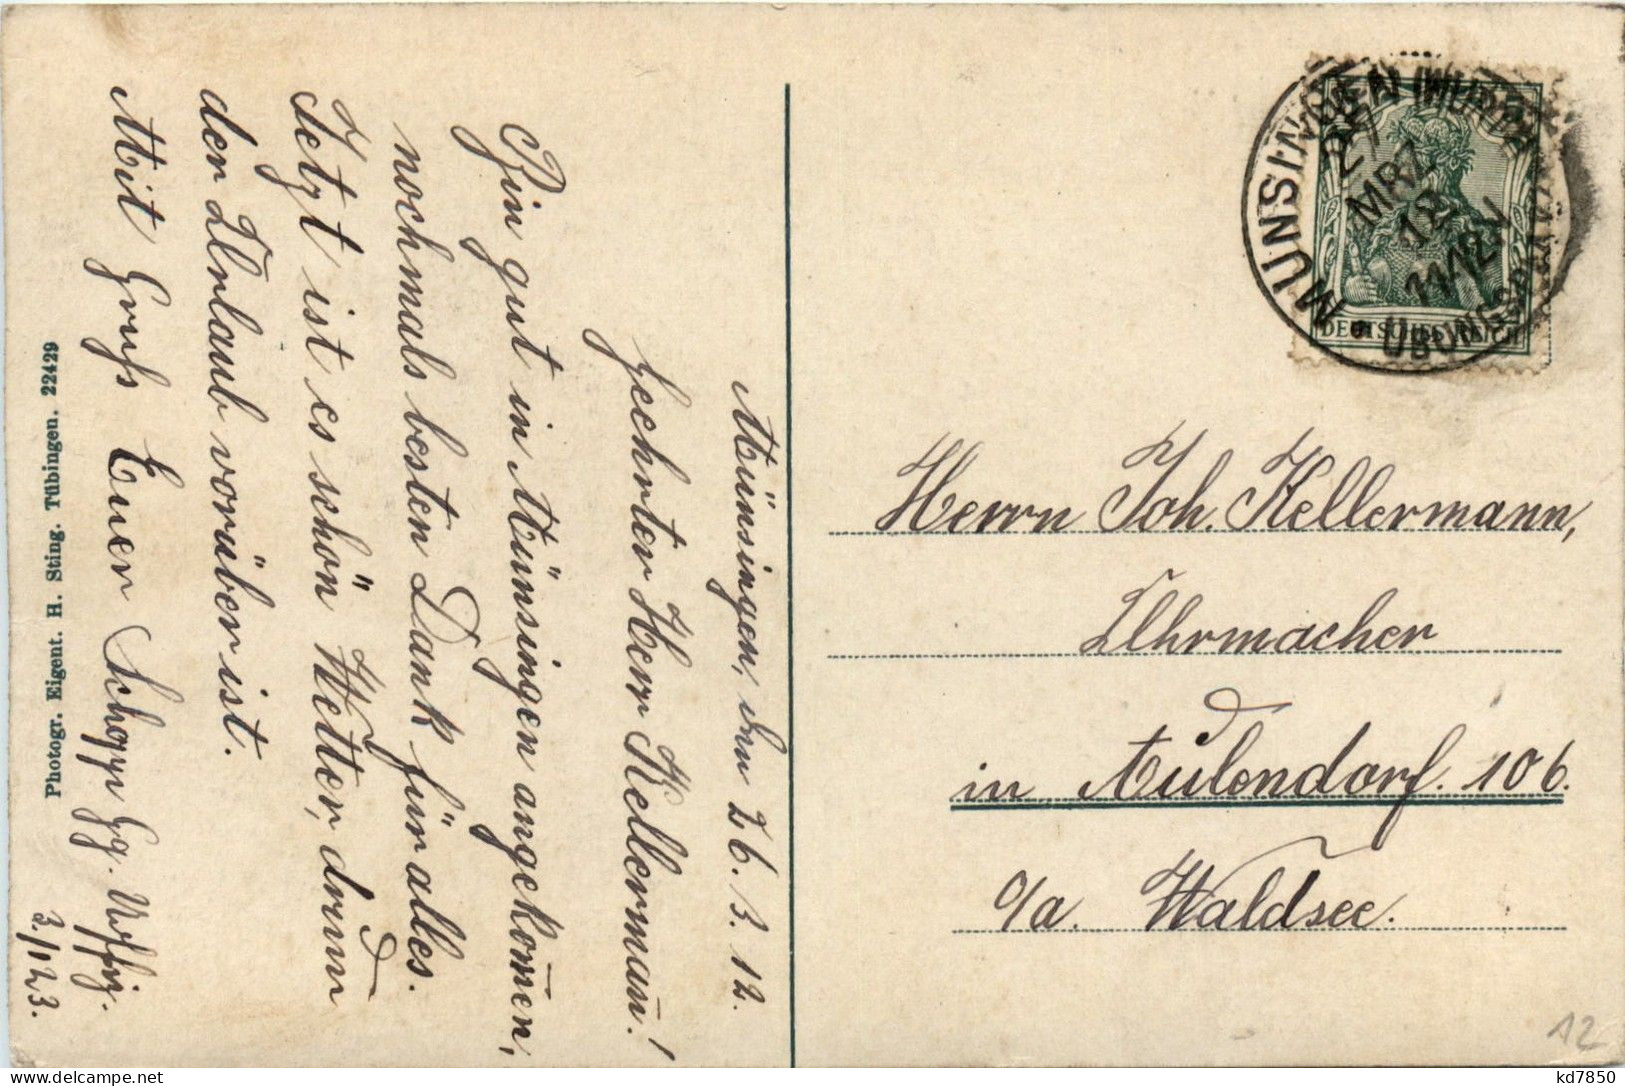 Münsingen, den 26.3.12.
Geehrter Herr Kellermañ!
Bin gut in Münsingen angekom̄en,
nochmals besten Dank für alles.
Jetzt ist es schön Wetter, drum
der Urlaub vorüber ist.
Mit Gruß Euer Schopp
3./123.
Photogr. Eigent. H. Sting. Tübingen. 22429
MÜNSINGEN (WÜRTT
27
MRZ
12
11-12
ÜBUNGSPL
DEUTSCHES REICH
Herrn Joh. Kellermann,
Uhrmacher
in Aulendorf. 106.
O/a. Waldsee.
12
kd7850